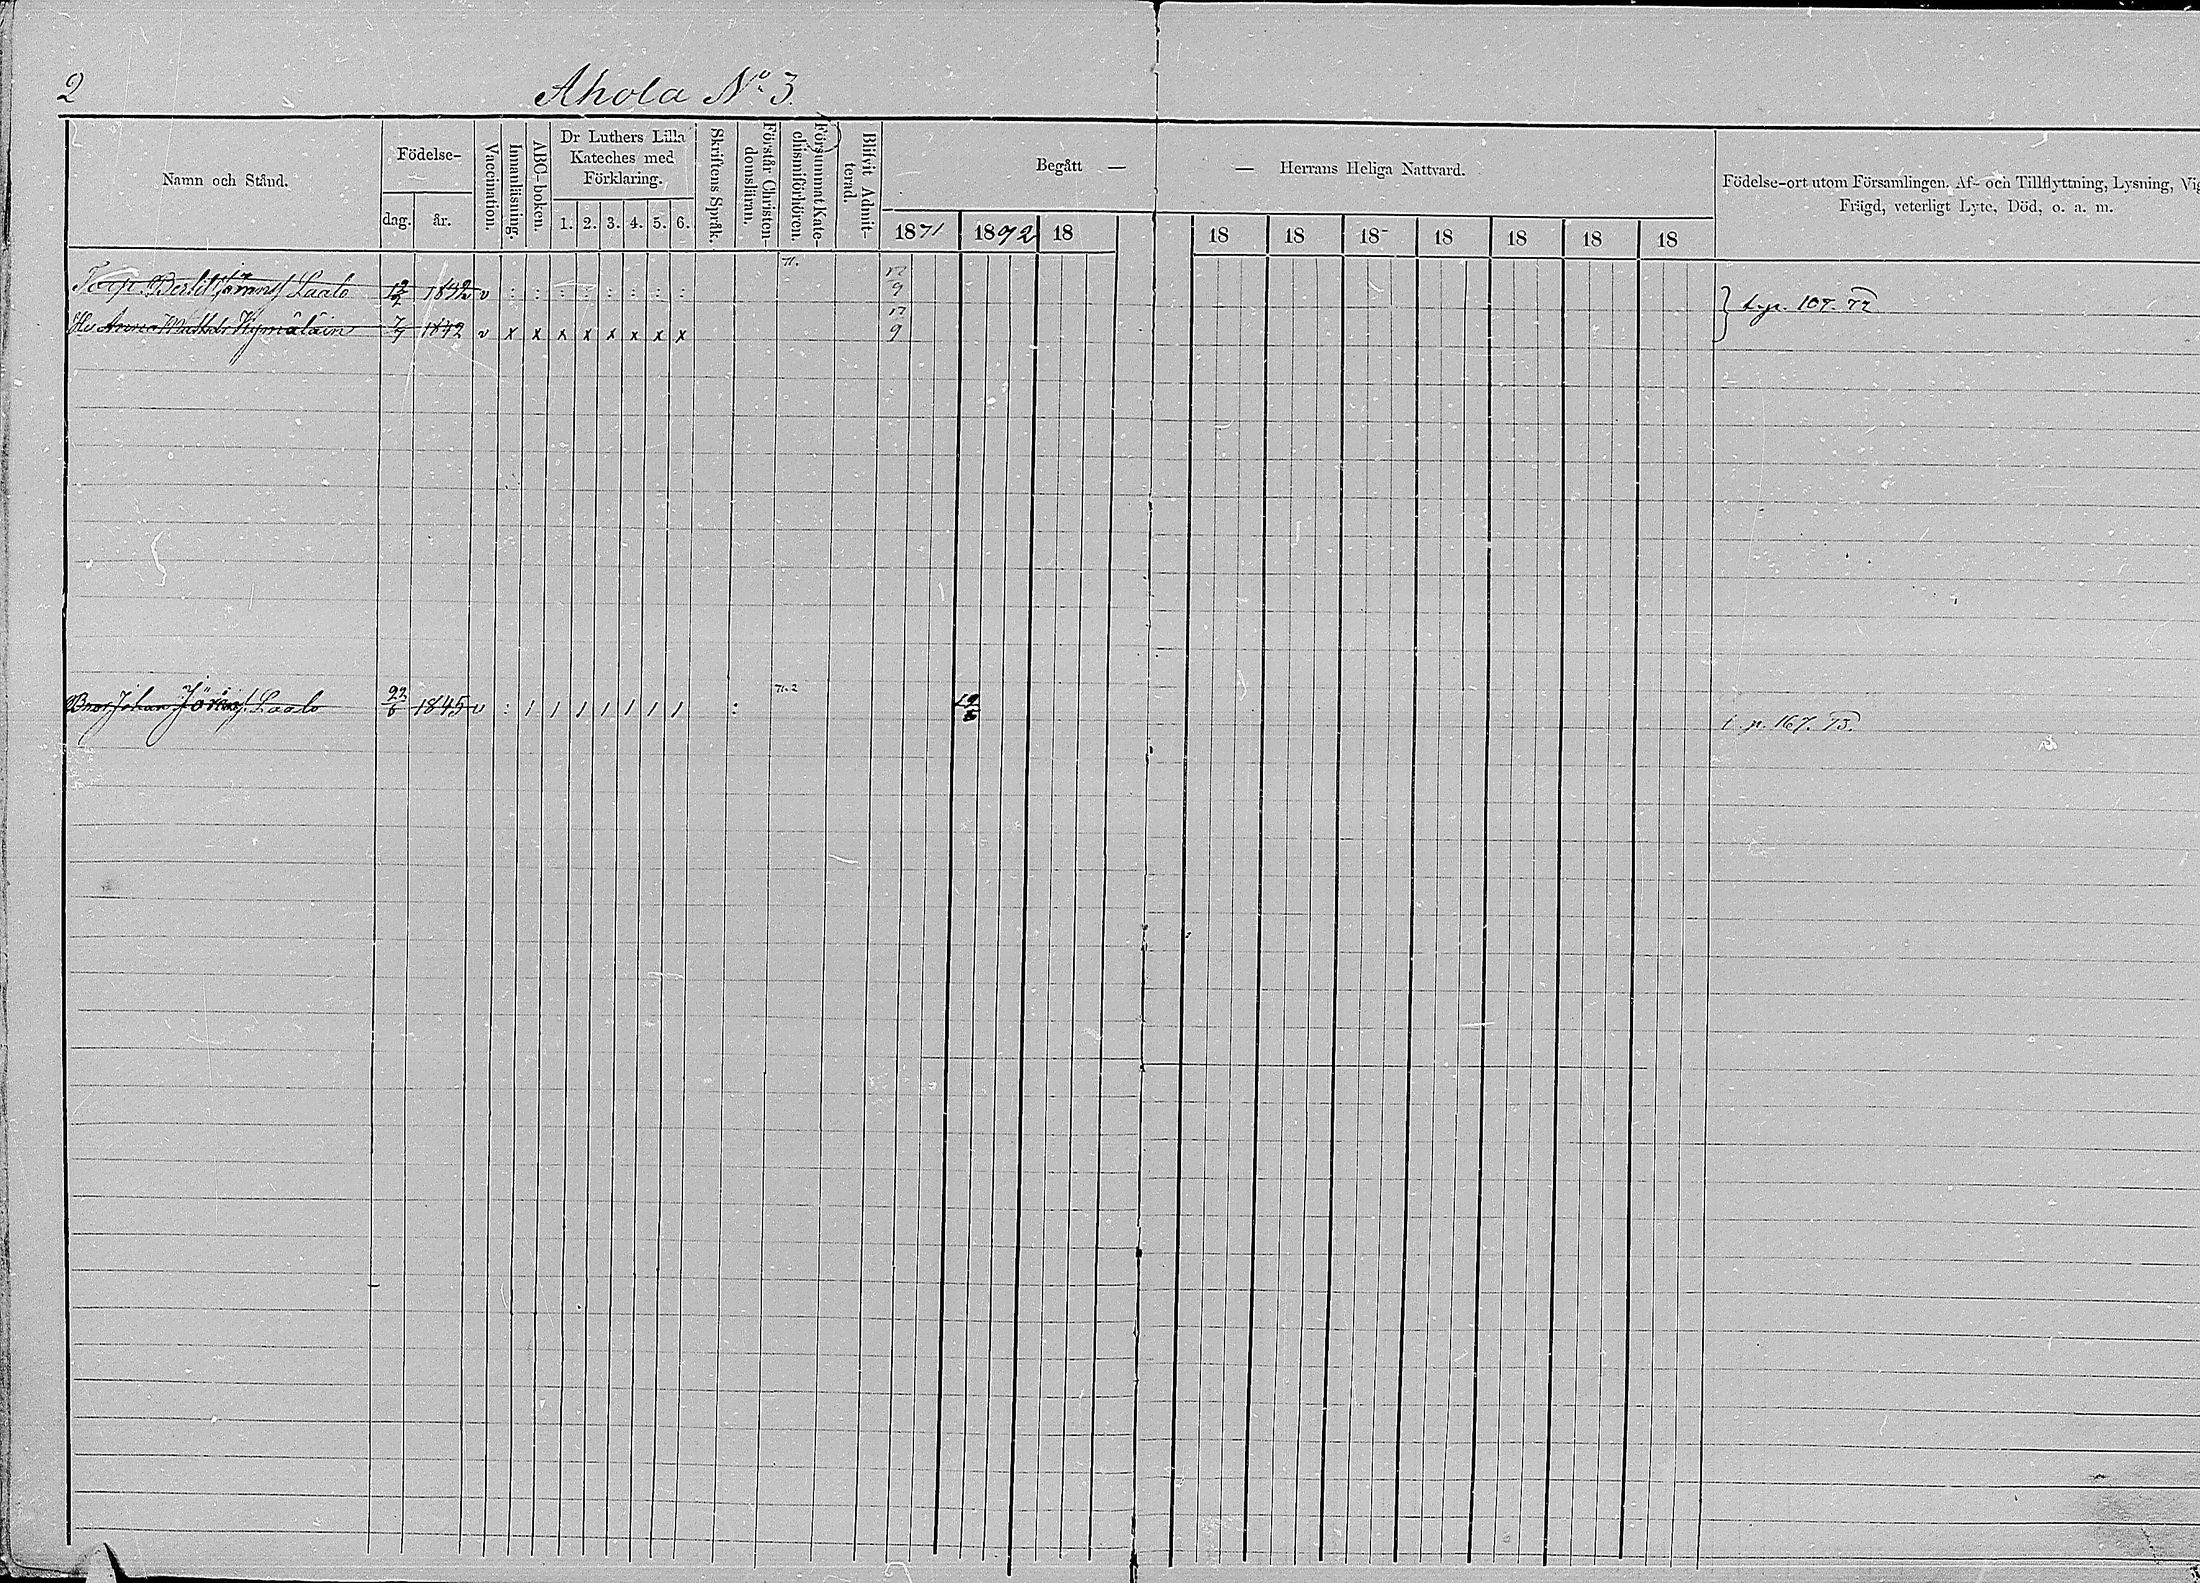 2 Ahola No 3.
Namn och Stånd.
Födelse-
dag. år.
Vaccination.
Innanläsning.
ABC-boken.
Dr Luthers Lilla
Kateches med
Förklaring.
1. 2. 3. 4. 5. 6.
Skriftens Språk.
Förstår Christen-
domsläran.
Försummat Kate-
chismiförhören.
Blifvit Admit-
terad.
Begått — — Herrans Heliga Nattvard.
1871 1892 18 18 18 18 18 18 18 18
Födelse-ort utom Församlingen, Af- och Tillflyttning, Lysning, Vig
Frägd, veterligt Lyte, Död, o. a. m.
Bertil Laalo 1842 v : : : : : : : : 71. 17/9
Hu Anna Kymäläin 1842 v x x x x x x x x 17/9
107. 72
Bror Johan Laalo 22/6 1845 v : / / / / / / / : 71.2 19/5 i p. 167. 73.